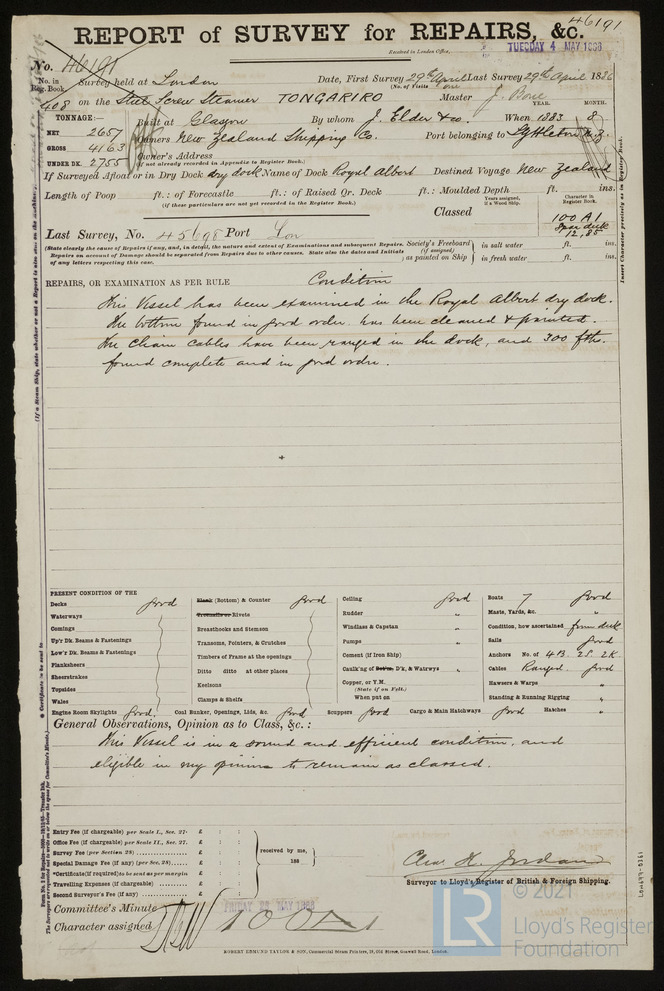 46191
REPORT of SURVEY for REPAIRS, &c.
Received in London Office, TUESDAY 4 MAY 1886
No. 46191
No. in Reg. Book. Survey held at London Date, First Survey 29th April Last Survey 29th April 1886
(No. of Visits one
408 on the Steel Screw Steamer TONGARIRO Master J. Bone
TONNAGE:— Built at Glasgow By whom J. Elder & Co. When 1883 8
YEAR. MONTH.
NET 2657 Owners New Zealand Shipping Co. Port belonging to Lyttleton N.Z.
GROSS 4163 Owner's Address
(if not already recorded in Appendix to Register Book.)
UNDER DK. 2755
If Surveyed Afloat or in Dry Dock dry dock Name of Dock Royal Albert Destined Voyage New Zealand
Length of Poop ft.: of Forecastle ft.: of Raised Qr. Deck ft.: Moulded Depth ft. ins.
(if these particulars are not yet recorded in the Register Book.)
Years assigned, if a Wood Ship. Character in Register Book.
Classed 100 A1
Spar deck
12,85
Last Survey, No. 45698 Port Lon
(State clearly the cause of Repairs if any, and, in detail, the nature and extent of Examinations and subsequent Repairs.
Repairs on account of Damage should be separated from Repairs due to other causes. State also the dates and Initials
of any letters respecting this case.
Society's Freeboard (if assigned) as painted on Ship
in salt water ft. ins.
in fresh water ft. ins.
REPAIRS, OR EXAMINATION AS PER RULE Condition
This Vessel has been examined in the Royal Albert dry dock.
The bottom found in good order. has been cleaned & painted.
The chain cables have been ranged in the dock, and 300 fths.
found complete and in good order.
PRESENT CONDITION OF THE
Decks good
Waterways
Comings
Up'r Dk. Beams & Fastenings
Low'r Dk. Beams & Fastenings
Planksheers
Sheerstrakes
Topsides
Wales
Engine Room Skylights good
Plank (Bottom) & Counter good
Treenails or Rivets
Breasthooks and Stemson
Transoms, Pointers, & Crutches
Timbers of Frame at the openings
Ditto ditto at other places
Keelsons
Clamps & Shelfs
Coal Bunker, Openings, Lids, &c. good
Ceiling good
Rudder "
Windlass & Capstan "
Pumps "
Cement (if Iron Ship) "
Caulk'ng of Bot'm D'k, & Watrwys "
Copper, or Y.M.
(State if on Felt.)
When put on
Scuppers good Cargo & Main Hatchways good Hatches "
Boats 7 good
Masts, Yards, &c. "
Condition, how ascertained from deck
Sails good
Anchors No. of 4B. 2S. 2K
Cables Ranged. good
Hawsers & Warps "
Standing & Running Rigging "
General Observations, Opinion as to Class, &c.:
This Vessel is in a sound and efficient condition, and
eligible in my opinion to remain as classed.
Entry Fee (if chargeable) per Scale I., Sec. 27. £ : :
Office Fee (if chargeable) per Scale II., Sec. 27. £ : :
Survey Fee (per Section 28) £ : :
Special Damage Fee (if any) (per Sec. 28) £ : :
*Certificate (if required) to be sent as per margin £ : :
Travelling Expenses (if chargeable) £ : :
Second Surveyor's Fee (if any) £ : :
received by me,
188
Chas. H. Jordan
Surveyor to Lloyd's Register of British & Foreign Shipping.
Committee's Minute FRIDAY 28 MAY 1886
Character assigned 100 A1
ROBERT EDMUND TAYLOR & SON, Commercial Steam Printers, 19, Old Street, Goswell Road, London.
LR
© 2021
Lloyd's Register
Foundation